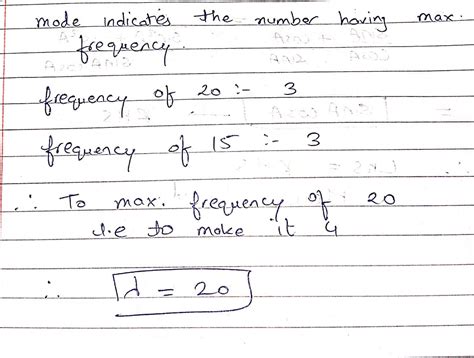 mode indicates the number having max.
frequency.
frequency of 20 :- 3
frequency of 15 :- 3
∴ To max. frequency of 20
i.e to make it 4
∴ λ = 20